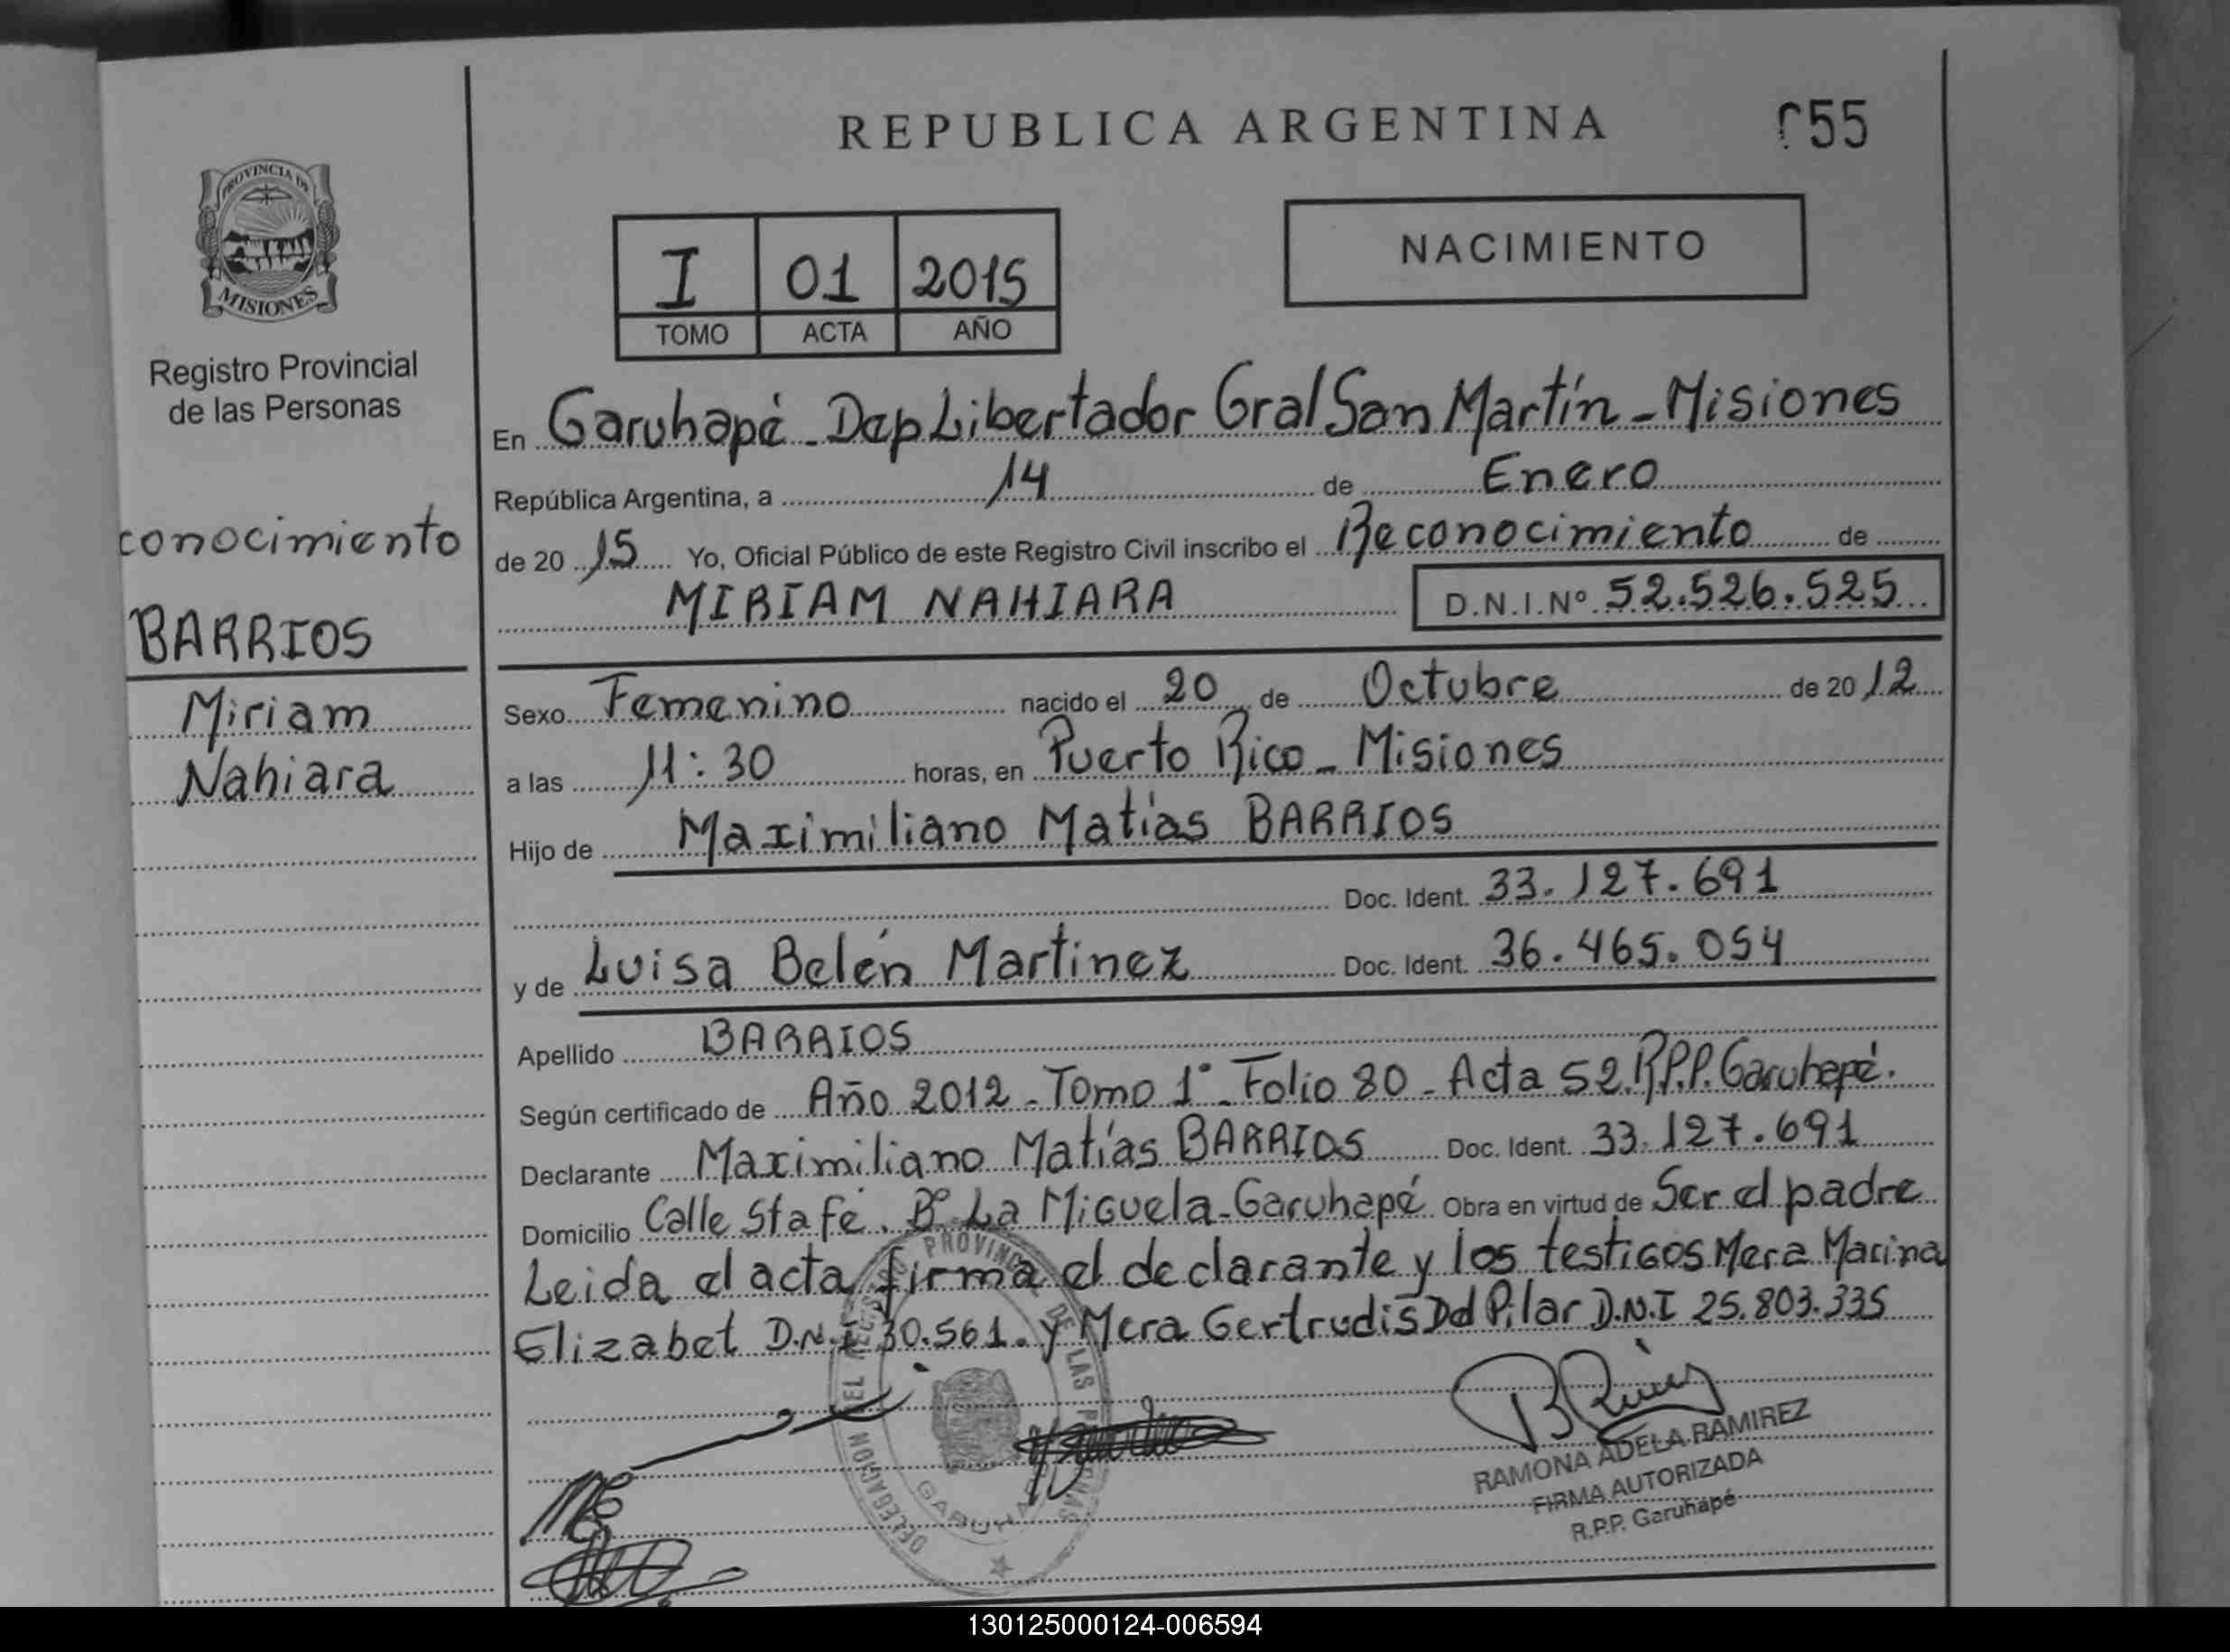 REPUBLICA ARGENTINA
055
PROVINCIA DE
MISIONES
Registro Provincial
de las Personas
conocimiento
BARRIOS
Miriam
Nahiara
I 01 2015
TOMO ACTA AÑO
NACIMIENTO
En Garuhapé - Dep Libertador Gral San Martín - Misiones
República Argentina, a 14 de Enero
de 20 15 Yo, Oficial Público de este Registro Civil inscribo el Reconocimiento de
MIRIAM NAHIARA D.N.I.Nº 52.526.525
Sexo Femenino nacido el 20 de Octubre de 20 12
a las 11:30 horas, en Puerto Rico - Misiones
Hijo de Maximiliano Matías BARRIOS
Doc. Ident. 33.127.691
y de Luisa Belén Martinez Doc. Ident. 36.465.054
Apellido BARRIOS
Según certificado de Año 2012 - Tomo 1° - Folio 80 - Acta 52 R.P.P. Garuhapé.
Declarante Maximiliano Matías BARRIOS Doc. Ident. 33.127.691
Domicilio Calle Sta fé. Bº La Miguela - Garuhapé Obra en virtud de Ser el padre
Leida el acta firma el declarante y los testigos Mera Marina
Elizabet D.N.I 30.561. y Mera Gertrudis Del Pilar D.N.I 25.803.335
DELEGACION DEL REGISTRO PROVINCIAL DE LAS PERSONAS
RAMONA ADELA RAMIREZ
FIRMA AUTORIZADA
R.P.P. Garuhapé
130125000124-006594